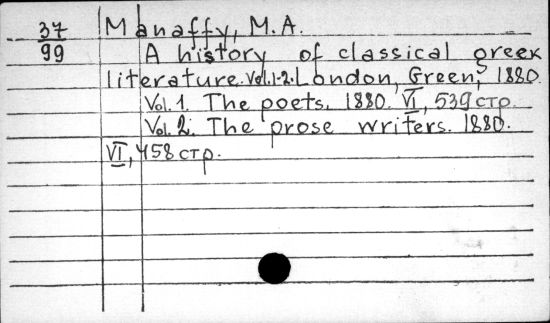 37 Manaffy, M.A.
99 A history of classical greek
literature. Vol. 1-2. London, Green, 1880.
Vol. 1. The poets. 1880. VI, 539 стр.
Vol. 2. The prose writers. 1880.
VI, 458 стр.